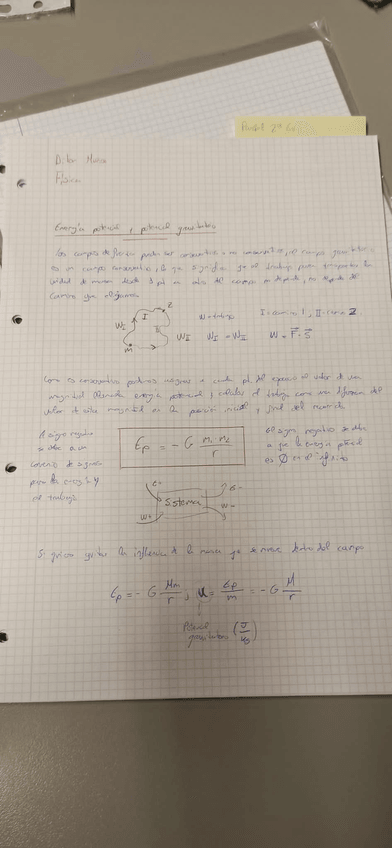 Física
Energía potencial y potencial gravitatorio
Los campos de fuerza pueden ser conservativos o no conservativos, el campo gravitatorio
es un campo conservativo, lo que significa que el trabajo para transportar la
unidad de masa desde 1 pt a otro del campo no depende del
camino que sigamos
2
I
W_I
II
W_II
m
W = trabajo
I = camino 1, II = camino 2
W_I = W_II
W = F⃗ · S⃗
Como es conservativo podemos asignar a cada pt del espacio el valor de una
magnitud llamada energía potencial, y calcular el trabajo como una diferencia del
valor de esta magnitud en la posición inicial y final del recorrido
El signo negativo
se debe a un
convenio de signos
para la energía y
el trabajo
Ep = - G m₁ m₂ / r
El signo negativo se debe
a que la energía potencial
es 0 en el infinito
E-
W+
Sistema
E-
W-
Si quiero quitar la influencia de la masa que se mueve dentro del campo
Ep = - G Mm / r , u = Ep / m = - G M / r
Potencial
gravitatorio (J / kg)